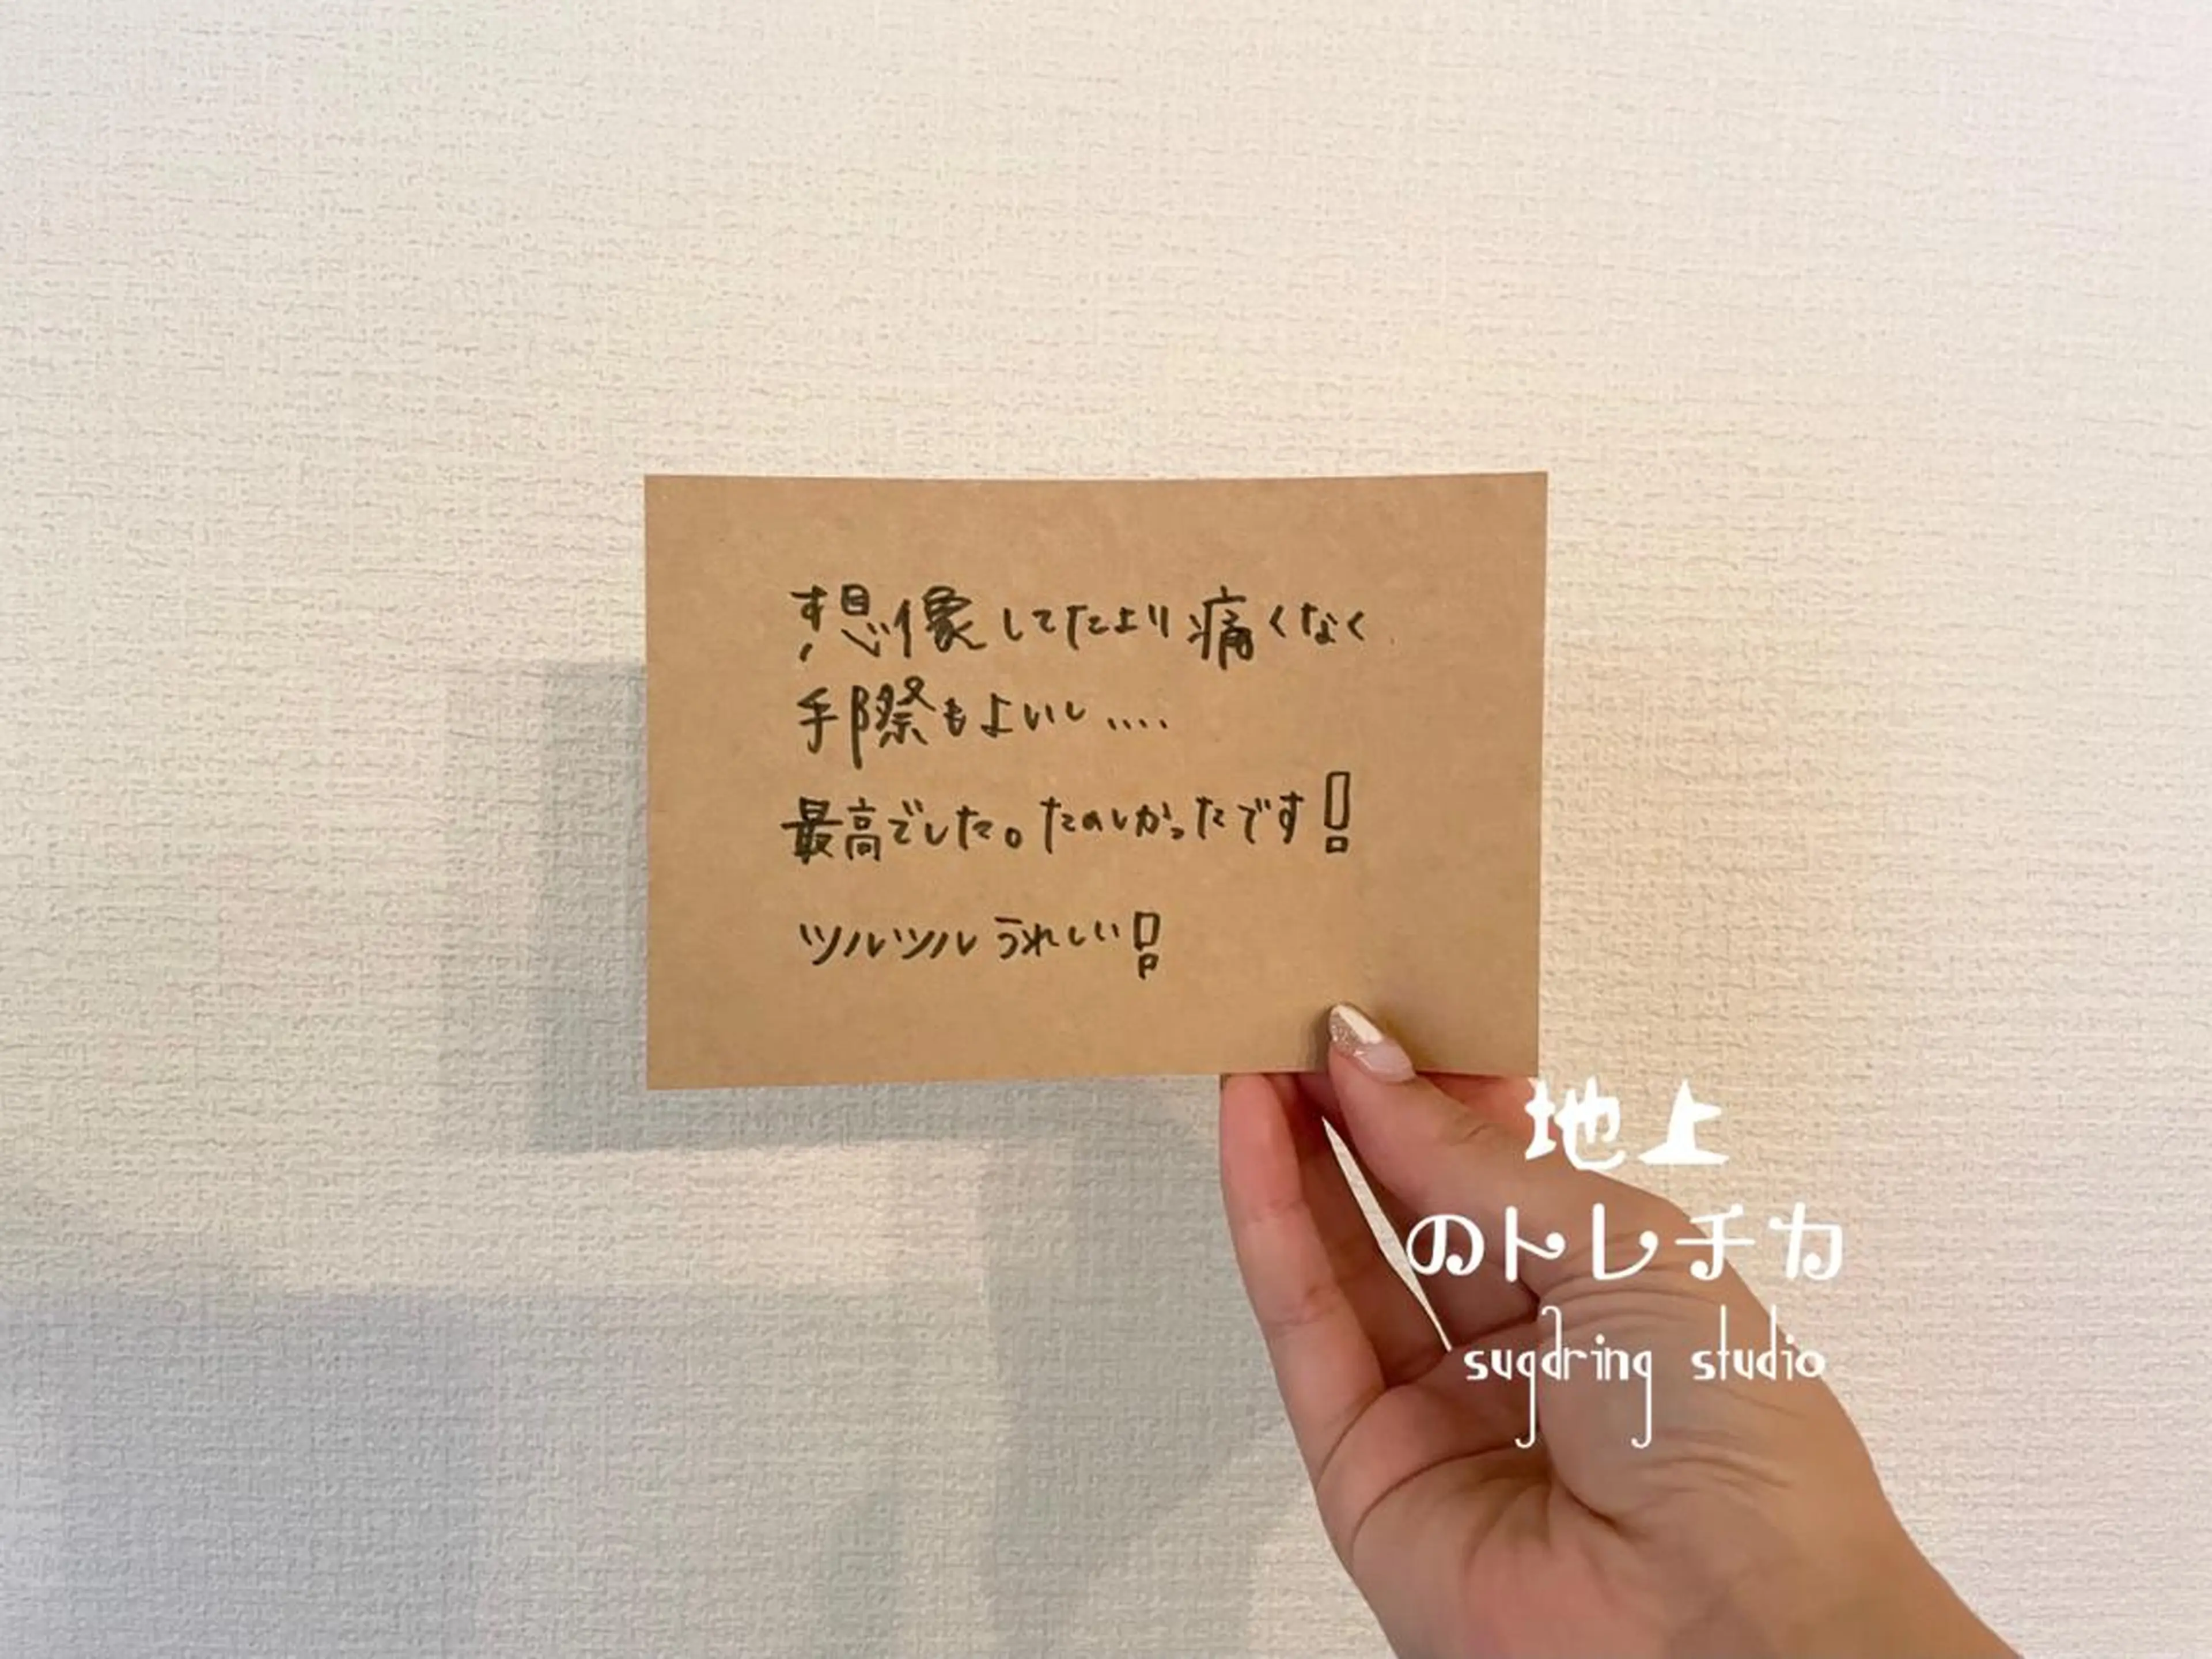 想像してたより痛くなく
手際もよいし....
最高でした。たのしかったです!
ツルツルうれしい!
地上
のトレチカ
sugaring studio